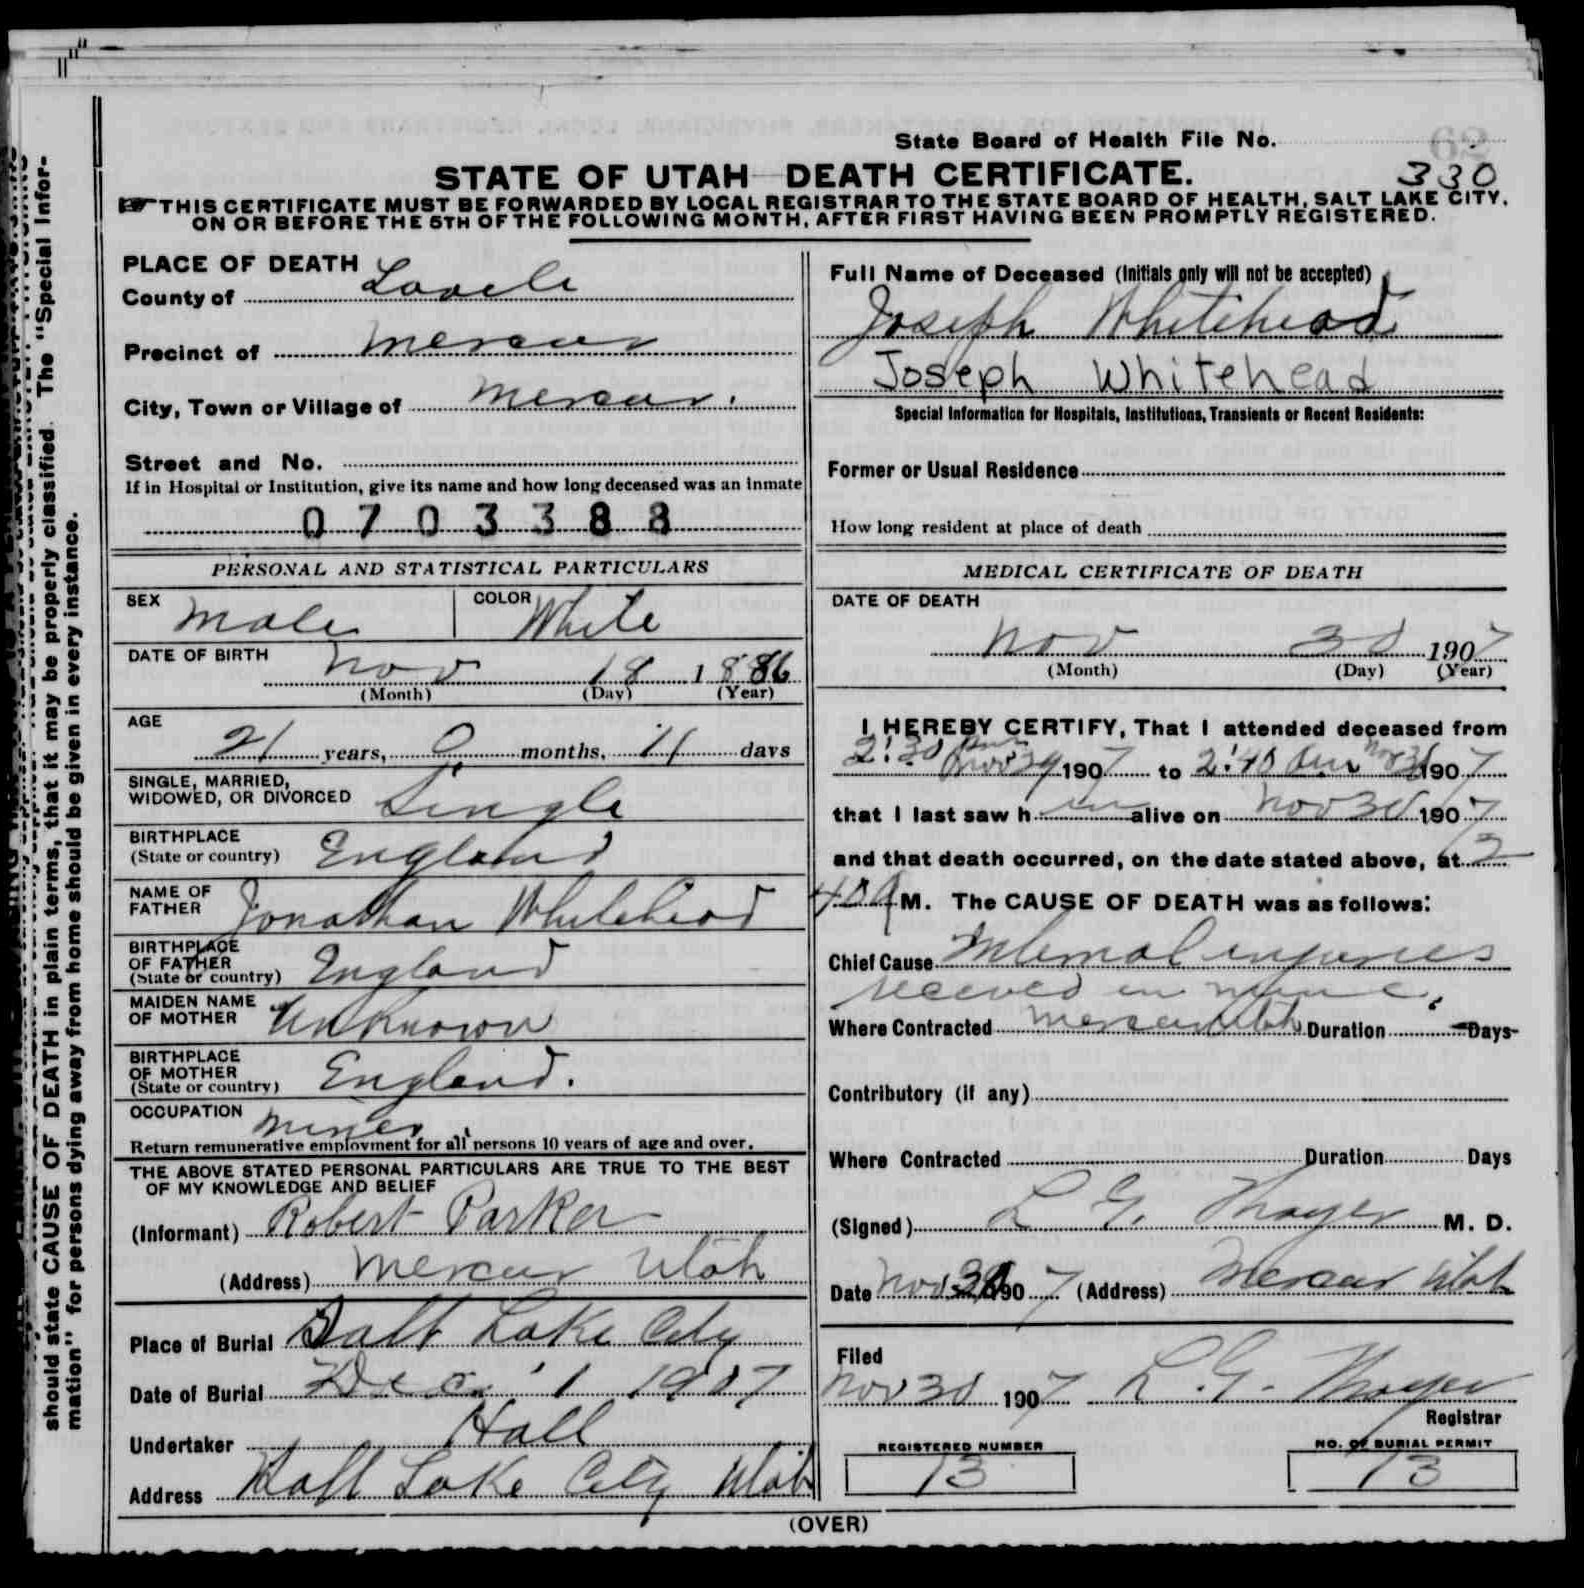 State Board of Health File No.
62
330
STATE OF UTAH—DEATH CERTIFICATE.
THIS CERTIFICATE MUST BE FORWARDED BY LOCAL REGISTRAR TO THE STATE BOARD OF HEALTH, SALT LAKE CITY,
ON OR BEFORE THE 5TH OF THE FOLLOWING MONTH, AFTER FIRST HAVING BEEN PROMPTLY REGISTERED.
should state CAUSE OF DEATH in plain terms, that it may be properly classified. The "Special Infor-
mation" for persons dying away from home should be given in every instance.
PLACE OF DEATH
County of
Precinct of Mercur
City, Town or Village of Mercur.
Street and No.
If in Hospital or Institution, give its name and how long deceased was an inmate
0703388
PERSONAL AND STATISTICAL PARTICULARS
SEX Male COLOR White
DATE OF BIRTH Nov 18 1886
(Month) (Day) (Year)
AGE
21 years, 0 months, 11 days
SINGLE, MARRIED,
WIDOWED, OR DIVORCED Single
BIRTHPLACE
(State or country) England
NAME OF
FATHER Jonathan Whitehead
BIRTHPLACE
OF FATHER
(State or country) England
MAIDEN NAME
OF MOTHER Unknown
BIRTHPLACE
OF MOTHER
(State or country) England.
OCCUPATION Miner
Return remunerative employment for all persons 10 years of age and over.
THE ABOVE STATED PERSONAL PARTICULARS ARE TRUE TO THE BEST
OF MY KNOWLEDGE AND BELIEF
(Informant) Robert Parker
(Address) Mercur Utah
Place of Burial Salt Lake City
Date of Burial Dec 1 1907
Undertaker Hall
Address Salt Lake City Utah
Full Name of Deceased (Initials only will not be accepted)
Joseph Whitehead
Joseph Whitehead
Special Information for Hospitals, Institutions, Transients or Recent Residents:
Former or Usual Residence
How long resident at place of death
MEDICAL CERTIFICATE OF DEATH
DATE OF DEATH
Nov 30 1907
(Month) (Day) (Year)
I HEREBY CERTIFY, That I attended deceased from
2:30 Nov 1907 to 2:40 Nov 30 1907
that I last saw him alive on Nov 30 1907
and that death occurred, on the date stated above, at 2
40 A M. The CAUSE OF DEATH was as follows:
Chief Cause Internal injuries
received in mine.
Where Contracted Mercur Utah Duration Days
Contributory (if any)
Where Contracted Duration Days
(Signed) L G. Thayer M. D.
Date Nov 30 1907 (Address) Mercur Utah
Filed
Nov 30 1907 L. G. Thayer
Registrar
REGISTERED NUMBER
13
NO. OF BURIAL PERMIT
13
(OVER)